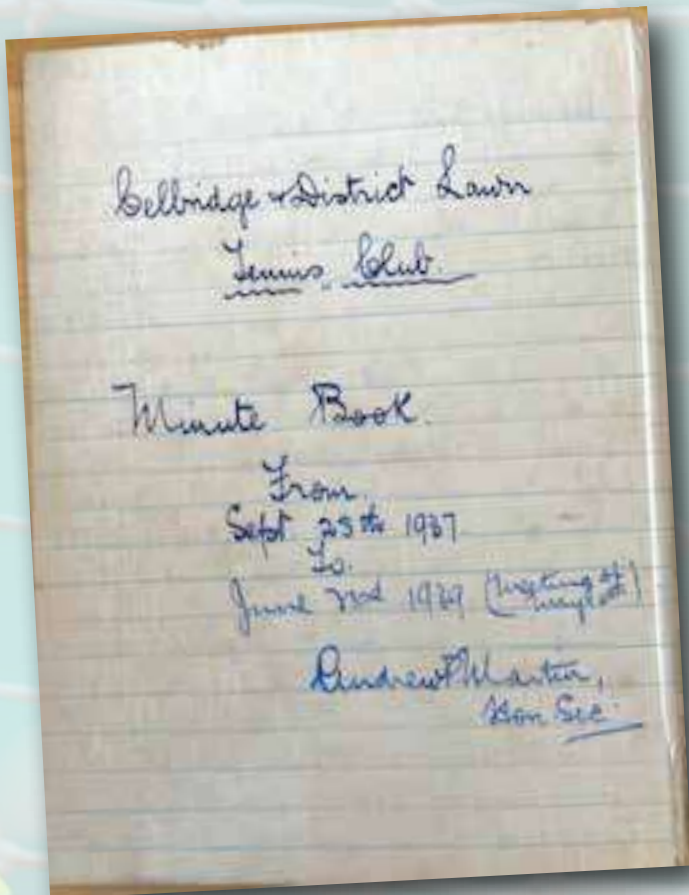 Celbridge & District Lawn
Tennis Club.
Minute Book.
From
Sept 25th 1937
To.
June 1939 (Meeting of
Andrew Martin,
Hon Sec.